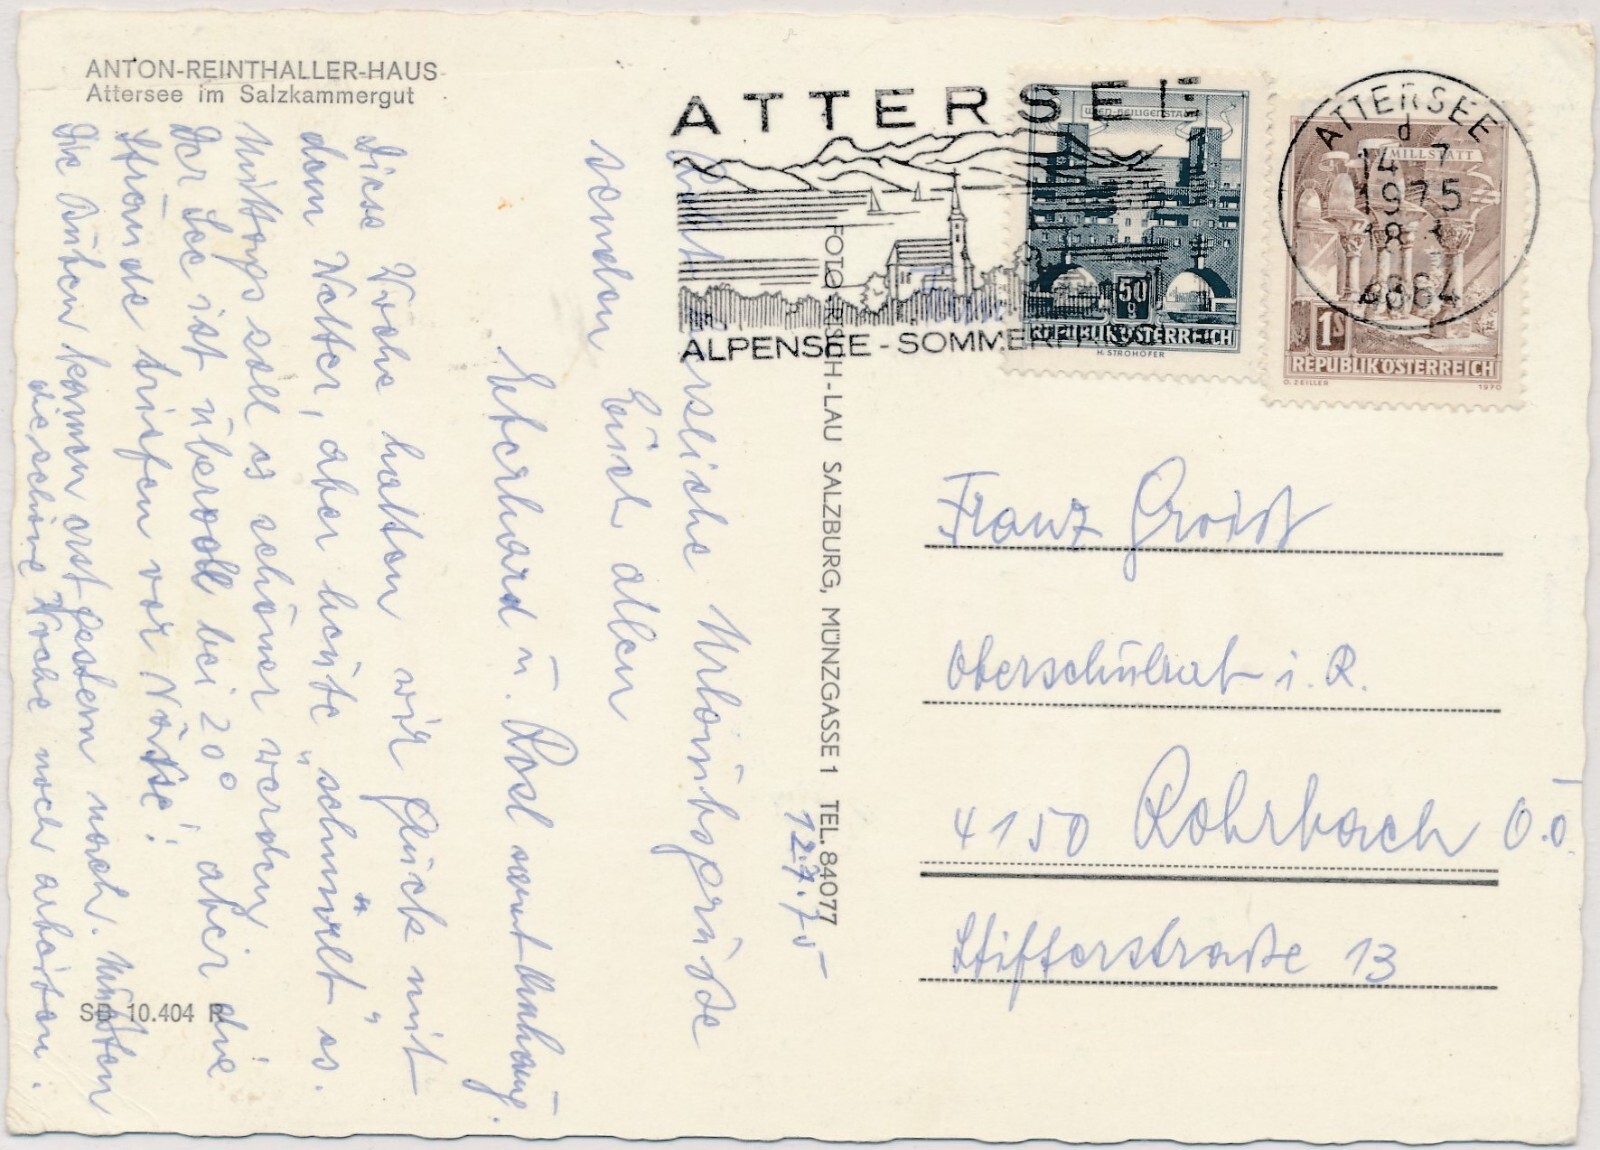 ANTON-REINTHALLER-HAUS
Attersee im Salzkammergut
ATTERSEE
ALPENSEE - SOMMER
WIEN-HEILIGENSTADT
50 g
REPUBLIK ÖSTERREICH
H. STROHOFER
MILLSTATT
1 S
REPUBLIK ÖSTERREICH
O. ZEILLER 1970
ATTERSEE
d
14. 7
1975
18
4864
12.7.75
Herzliche Urlaubsgrüße
senden Euch allen
Eberhard u. Rosl samt Anhang.
Diese Woche hatten wir Glück mit
dem Wetter, aber heute "schnürlt" es.
Mittags soll es schöner werden.
Der See ist überall bei 20° aber die
Strände triefen vor Nässe!
Die Buben kamen erst gestern nach. Mußten
die schöne Woche noch arbeiten.
FOTO -LAU SALZBURG, MÜNZGASSE 1 TEL. 84077
SB 10.404 R
Franz
Oberschulrat i. R.
4150 Rohrbach O.Ö.
Stifterstraße 13